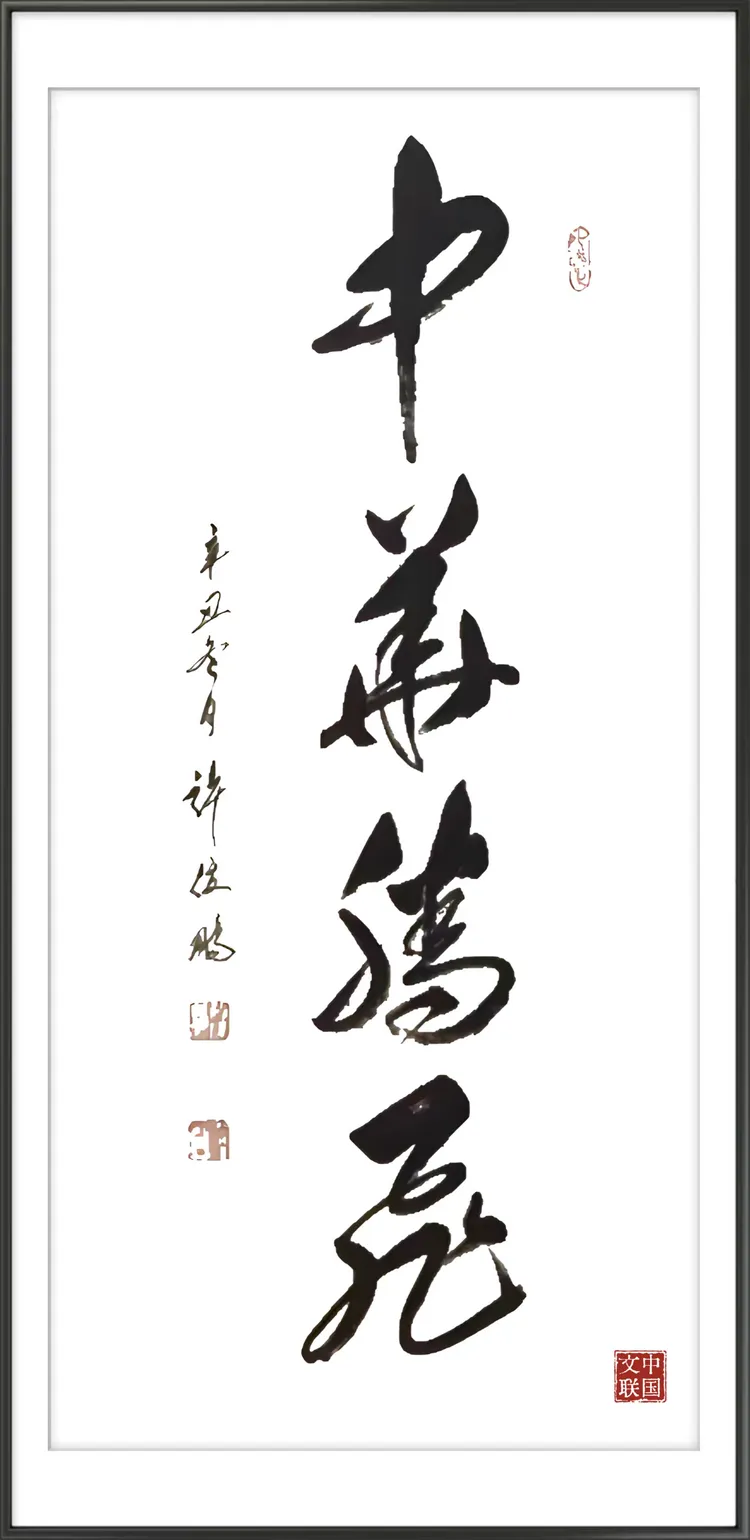 中華騰飛
辛丑冬月許俊鵬
中国
文联